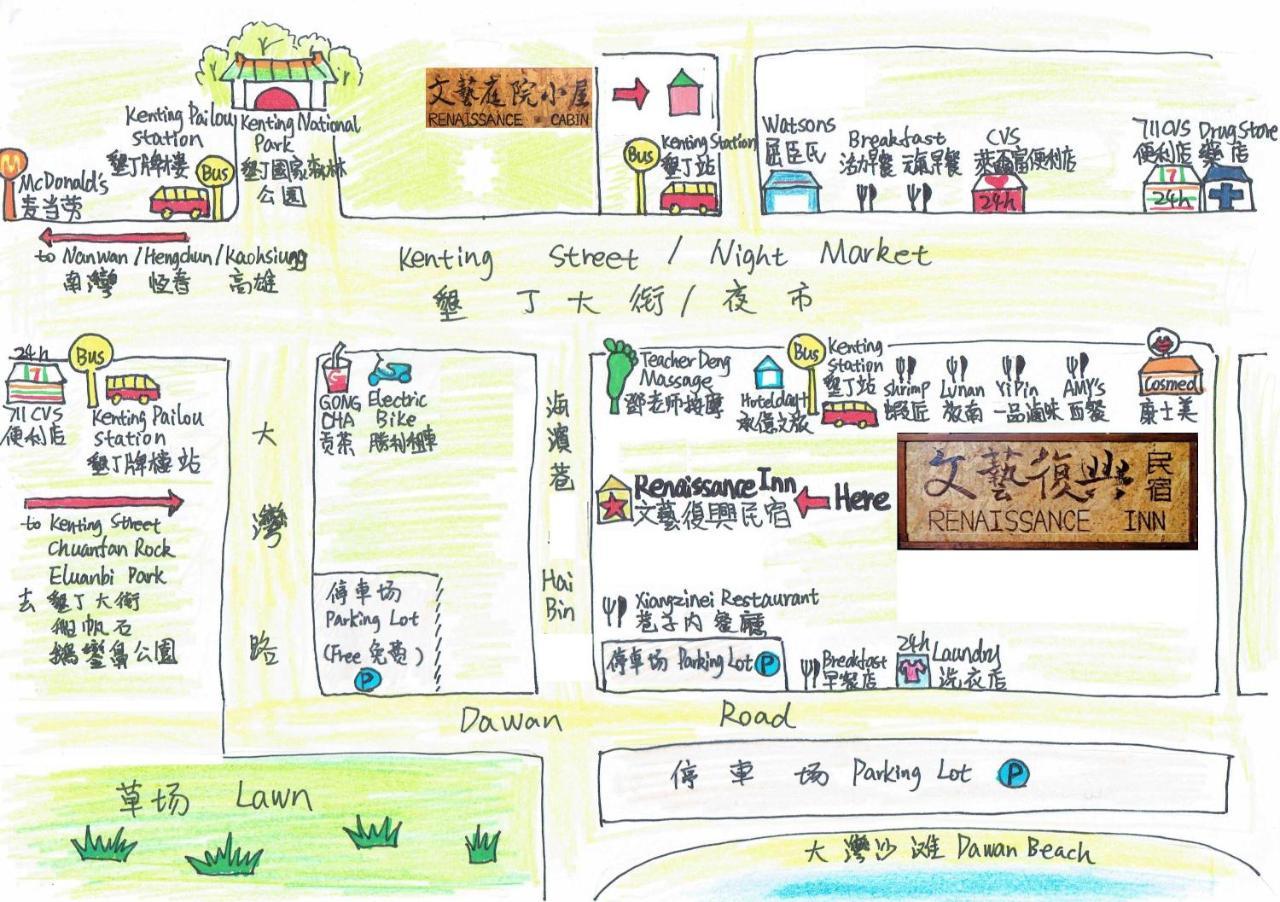 文藝庭院小屋
RENAISSANCE CABIN
Kenting Pailou
station
墾丁牌樓
Bus
Kenting National
Park
墾丁國家森林
公園
M
McDonald's
麦当劳
Bus
Kenting Station
墾丁站
Watsons
屈臣氏
Breakfast
活力早餐 元氣早餐
CVS
萊爾富便利店
24h
711 CVS
便利店
7
24h
Drug Store
藥店
to Nanwan/Hengchun/Kaohsiung
南灣 恆春 高雄
Kenting Street / Night Market
墾丁大街/夜市
24h
7
711 CVS
便利店
Bus
Kenting Pailou
Station
墾丁牌樓站
to Kenting Street
Chuanfan Rock
Eluanbi Park
去 墾丁大街
船帆石
鵝鑾鼻公園
大灣路
GONG
CHA
贡茶
Electric
Bike
勝利租車
停車场
Parking Lot
(Free 免费)
P
海濱巷
Hai
Bin
Teacher Deng
Massage
鄧老师按摩
Hotelday+
承億文旅
Bus
Kenting
Station
墾丁站
shrimp
蝦匠
Lunan
YiPin
一品滷味
AMY's
西餐
Cosmed
康士美
Renaissance Inn
文藝復興民宿
Here
文藝復興民宿
RENAISSANCE INN
Xiangzinei Restaurant
巷子內餐廳
停車场 Parking Lot P
Breakfast
早餐店
24h
Laundry
洗衣店
Dawan Road
草场 Lawn
停車场 Parking Lot P
大灣沙滩 Dawan Beach